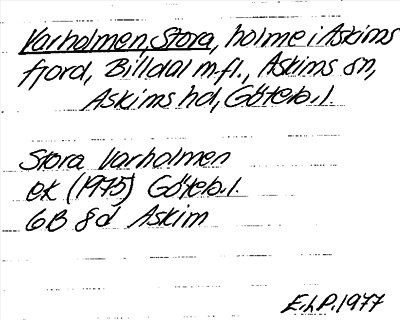 Varholmen, Stora, holme i Askims
fjord, Billdal m.fl., Askims sn,
Askims hd, Göteb.l.
Stora Varholmen
ek (1975) Göteb.l.
6B 8d Askim
E.h.P. 1977